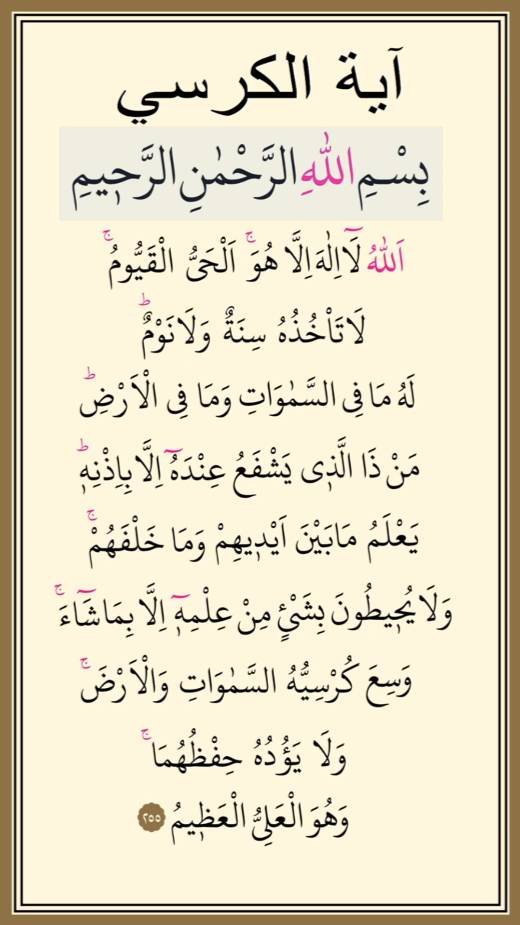 آية الكرسي
بِسْمِ اللّٰهِ الرَّحْمٰنِ الرَّحٖيمِ
اَللّٰهُ لَٓا اِلٰهَ اِلَّا هُوَۚ اَلْحَيُّ الْقَيُّومُۚ
لَا تَاْخُذُهُ سِنَةٌ وَلَا نَوْمٌؕ
لَهُ مَا فِى السَّمٰوَاتِ وَمَا فِى الْاَرْضِؕ
مَنْ ذَا الَّذٖى يَشْفَعُ عِنْدَهُٓ اِلَّا بِاِذْنِهٖؕ
يَعْلَمُ مَا بَيْنَ اَيْدٖيهِمْ وَمَا خَلْفَهُمْۚ
وَلَا يُحٖيطُونَ بِشَىْءٍ مِنْ عِلْمِهٖٓ اِلَّا بِمَا شَٓاءَۚ
وَسِعَ كُرْسِيُّهُ السَّمٰوَاتِ وَالْاَرْضَۚ
وَلَا يَؤُدُهُ حِفْظُهُمَاۚ
وَهُوَ الْعَلِىُّ الْعَظٖيمُ ٢٥٥